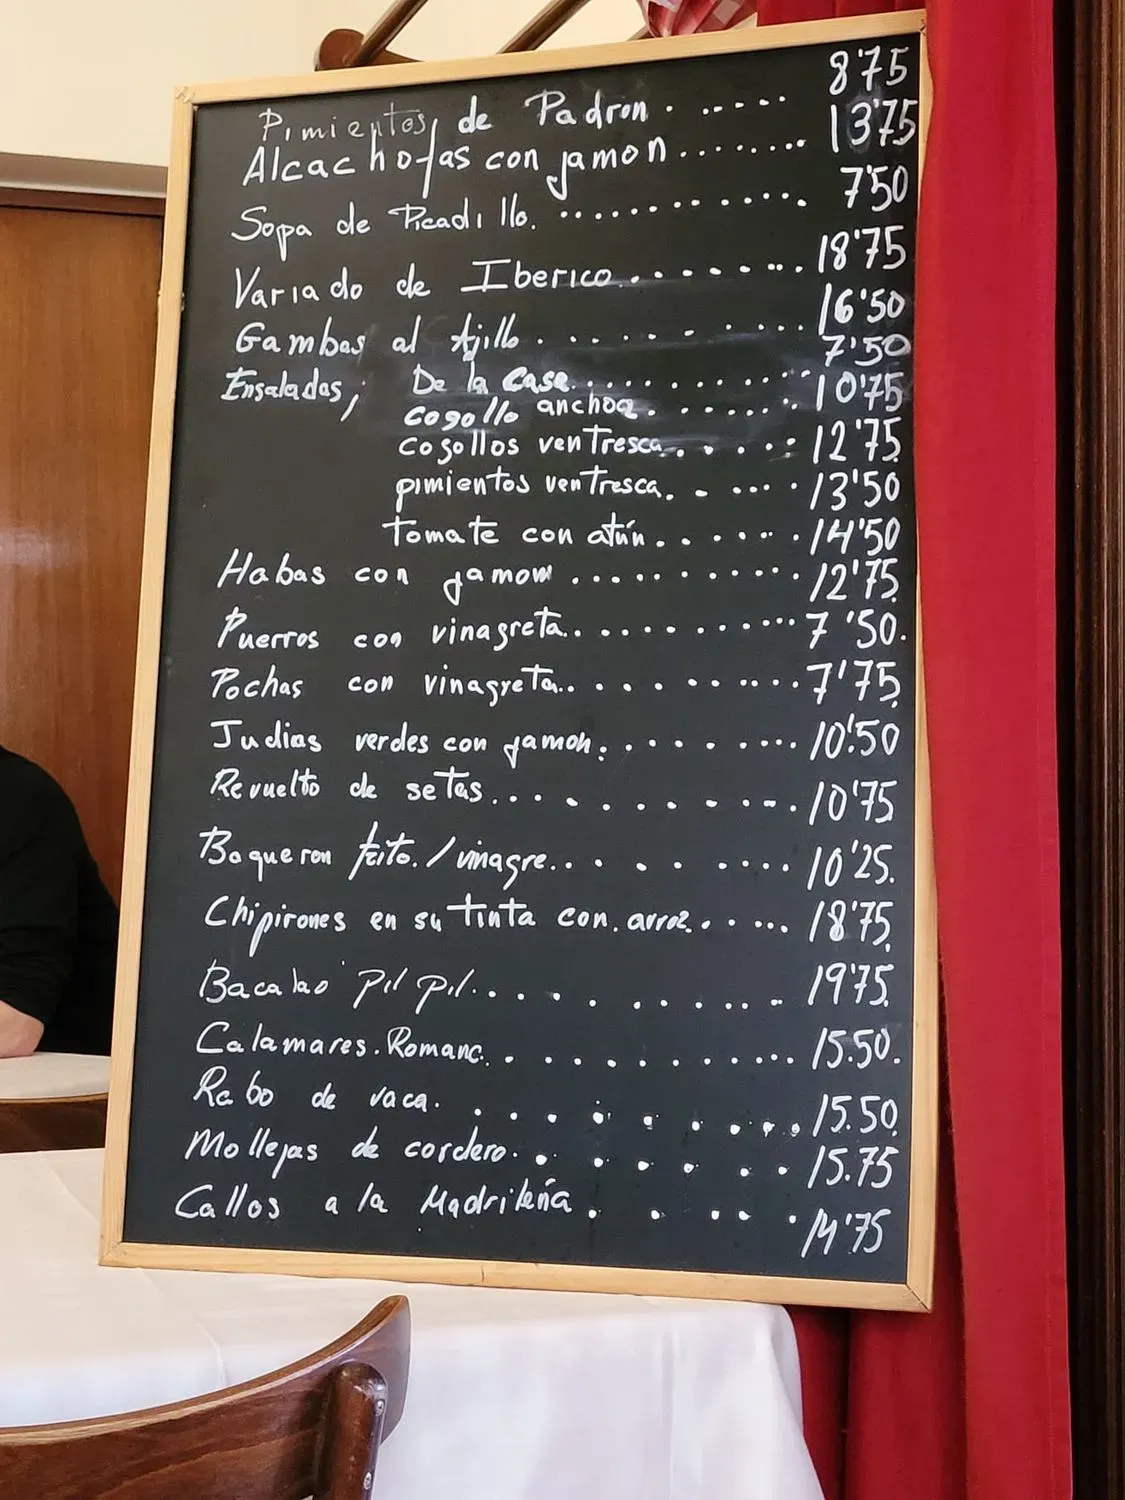 Pimientos de Padron · ..... 8'75
Alcachofas con jamon ........ 13'75
Sopa de Picadillo. ............. 7'50
Variado de Iberico ......... 18'75
Gambas al Ajillo ......... 16'50
Ensaladas; De la Casa ........... 7'50
cogollo anchoa ........ 10'75
cogollos ventresca ...... 12'75
pimientos ventresca. ...... 13'50
tomate con atún ....... 14'50
Habas con jamon ........... 12'75
Puerros con vinagreta ........... 7'50.
Pochas con vinagreta ......... 7'75
Judias verdes con jamon ......... 10'50
Revuelto de setas ........... 10'75
Boqueron frito. / vinagre ......... 10'25.
Chipirones en su tinta con. arroz ...... 18'75
Bacalao pil pil ........... 19'75
Calamares. Romana. ........... 15.50.
Rabo de vaca. ......... 15.50
Mollejas de cordero ........ 15.75
Callos a la Madrileña ..... 14'75